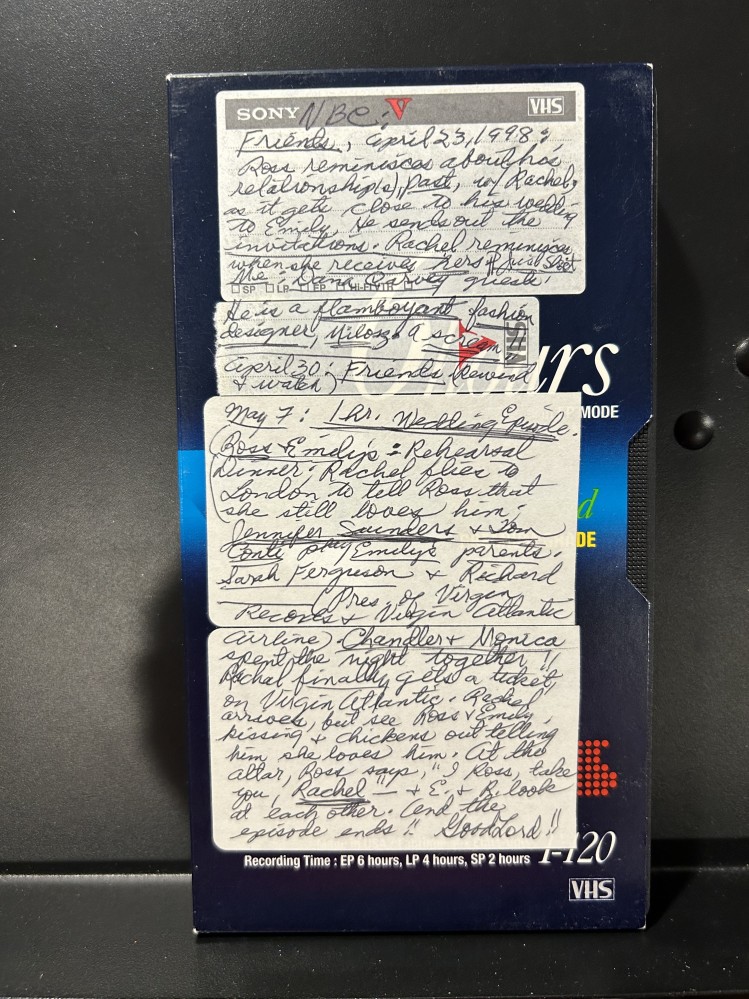 SONY NBC: V VHS
Friends, April 23, 1998:
Ross reminisces about his
relationship(s), past, w/ Rachel,
as it gets close to his wedding
to Emily. He sends out the
invitations. Rachel reminisces
when she receives hers. Just Shoot
Me: Dana Carvey guests!
SP LP EP HI-FI
He is a flamboyant fashion
designer, Milosz. A scream!!
VHS
April 30: Friends (Rewind
& watch)
urs
MODE
May 7: 1 hr. Wedding Episode.
(Ross & Emily's: Rehearsal
Dinner: Rachel flies to
London to tell Ross that
she still loves him;
d
DE
Jennifer Saunders & Tom
Conti play Emily's parents.
Sarah Ferguson & Richard
(Pres. of Virgin
Records & Virgin Atlantic
Airline). Chandler & Monica
spent the night together!!
Rachel finally gets a ticket
on Virgin Atlantic. Rachel
arrives, but see Ross & Emily
kissing & chickens out telling
him she loves him. At the
altar, Ross says, "I Ross, take
you, Rachel" — & E. & R. look
at each other. And the
episode ends!! Good Lord!!
T-120
Recording Time : EP 6 hours, LP 4 hours, SP 2 hours
VHS